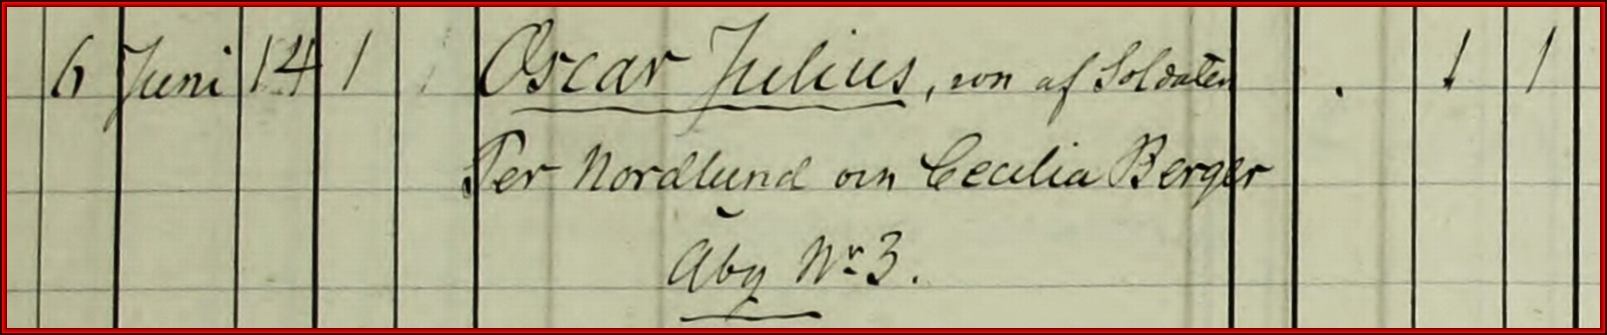 6 Juni 14 1 Oscar Julius, son af Soldaten . 1 1
Per Nordlund och Cecilia Berger
Åby Nr 3.